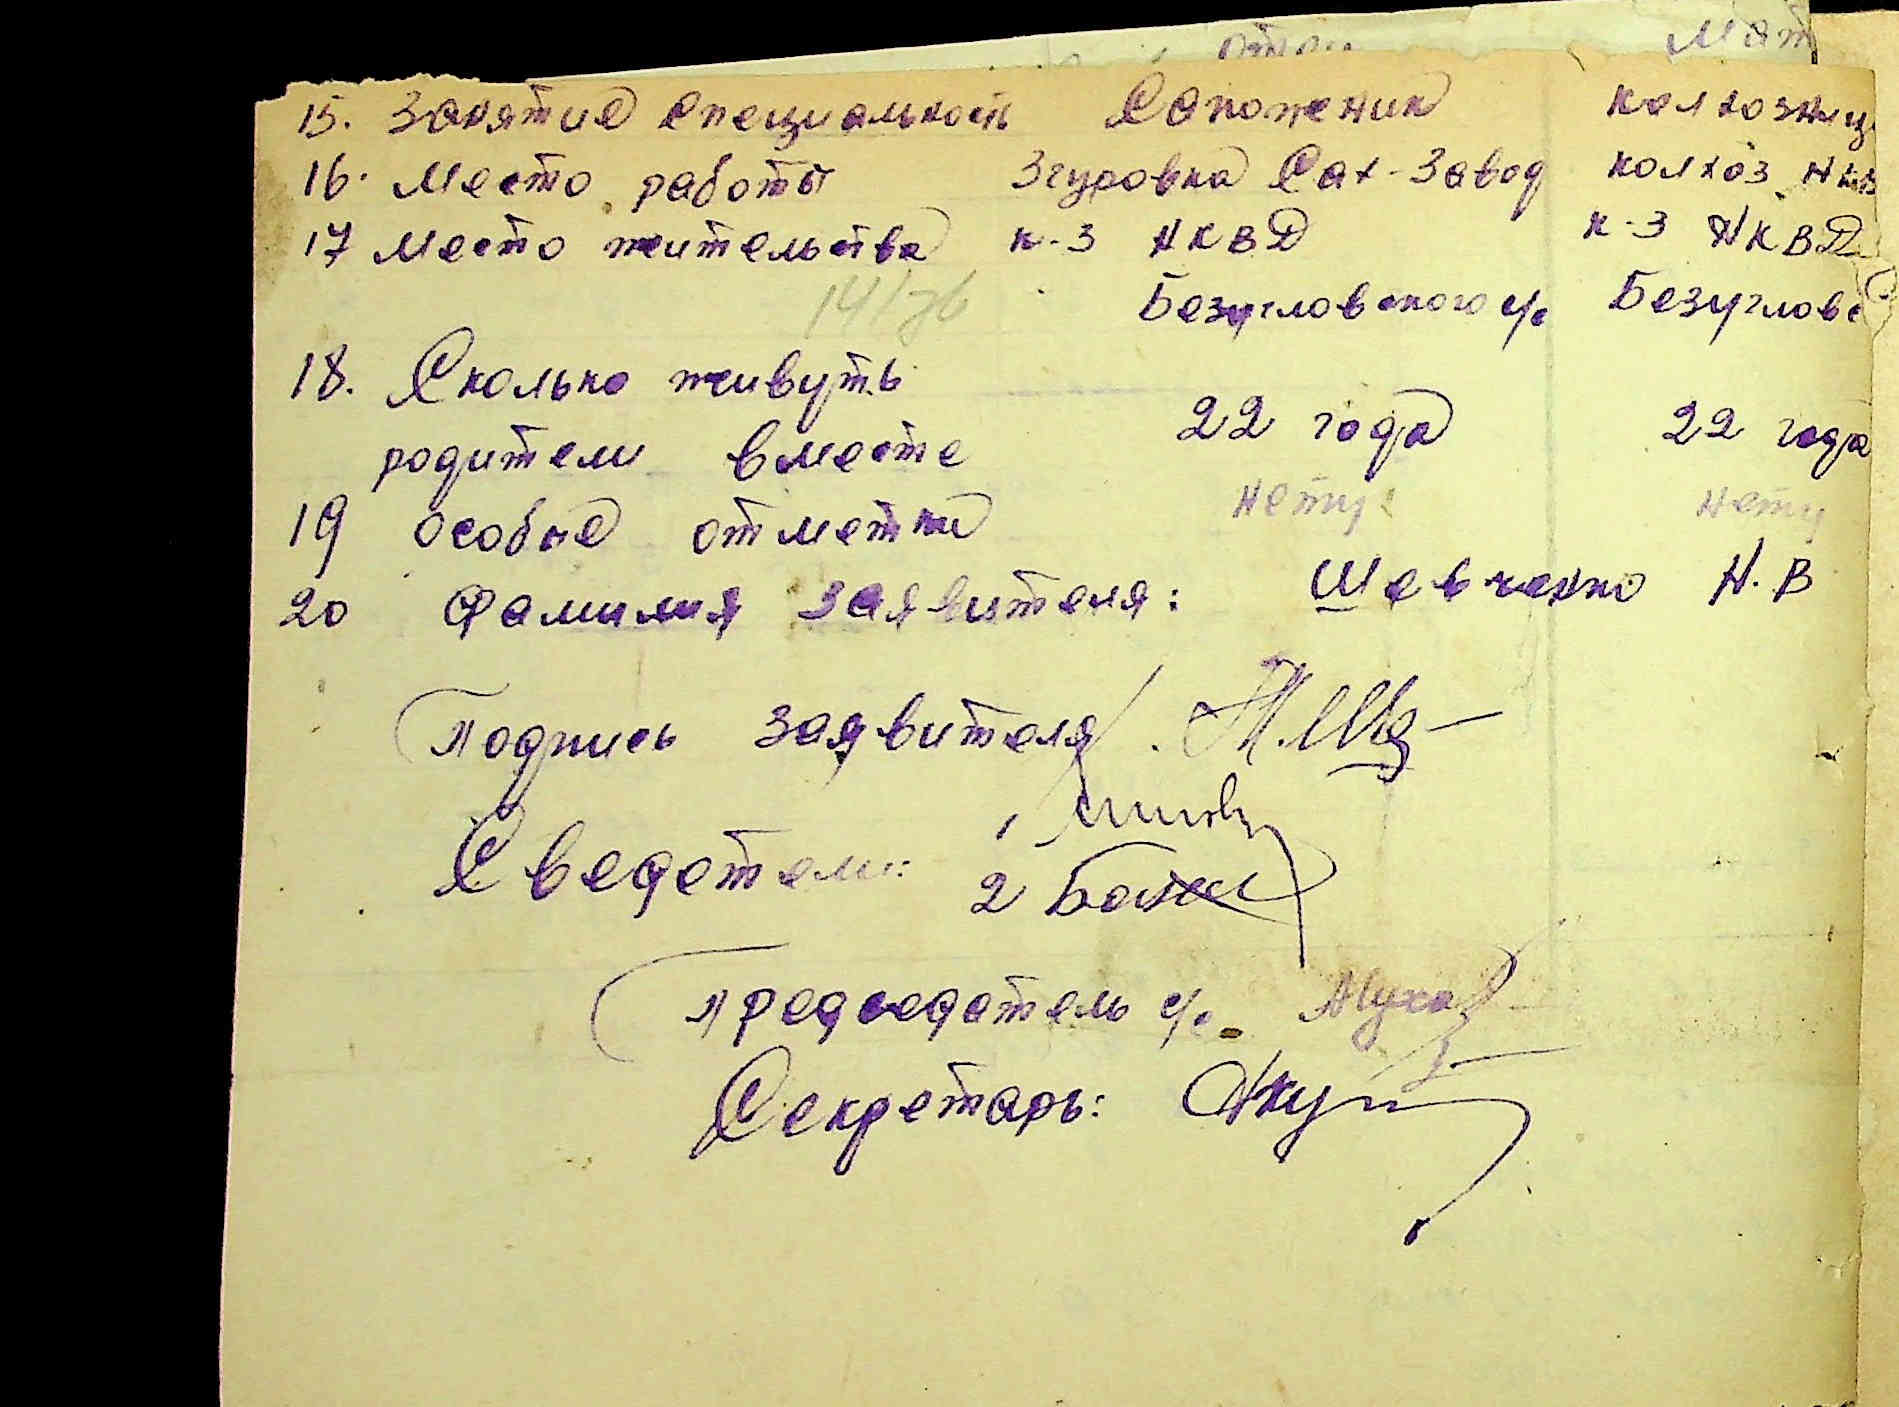 15. Занятие специальность Сапожник колхозниц
16. Место работы Згуровка Сах-Завод колхоз НКВ
17 Место жительства к-з НКВД к-з НКВД
Безугловского с/с Безугловс
18. Сколько живуть
родители вместе 22 года 22 года
19 особые отметки нету нету
20 Фамилия заявителя: Шевченко Н. В
Подпись заявителя
Сведетели: 1
2
Председатель с/с. Муха
Секретарь: